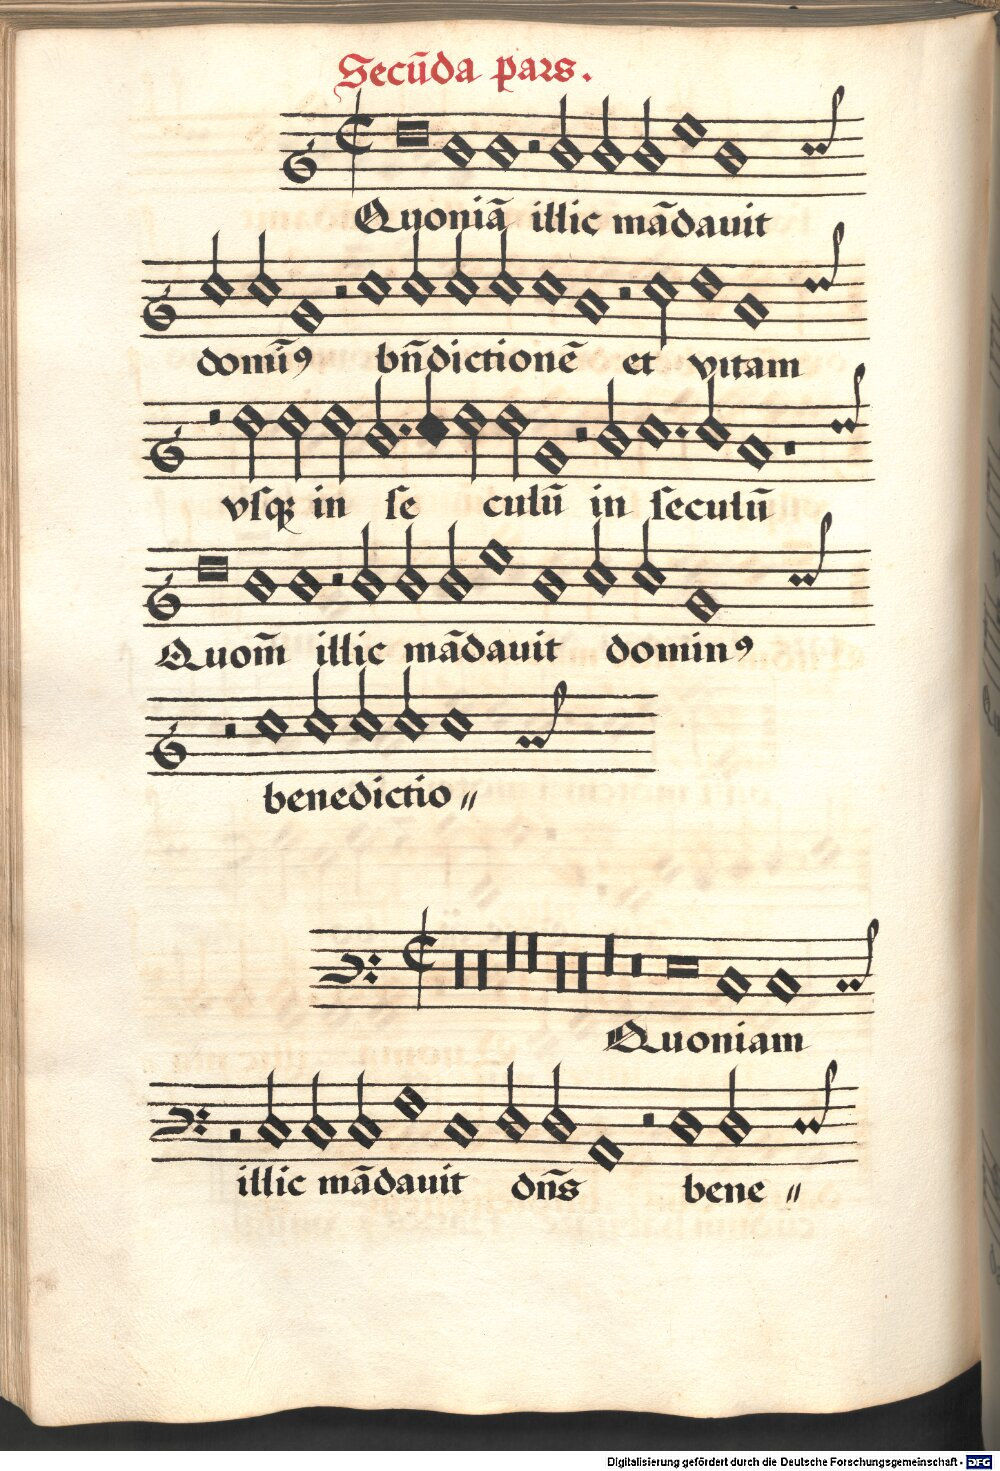 Secūda pars.
Quoniā illic mādauit
domī⁹ bn̄dictionē et vitam
vsqꝫ in se culū in seculū
Quom̄ illic mādauit domin⁹
benedictio〃
Quoniam
illic mādauit dn̄s bene〃
Digitalisierung gefördert durch die Deutsche Forschungsgemeinschaft - DFG